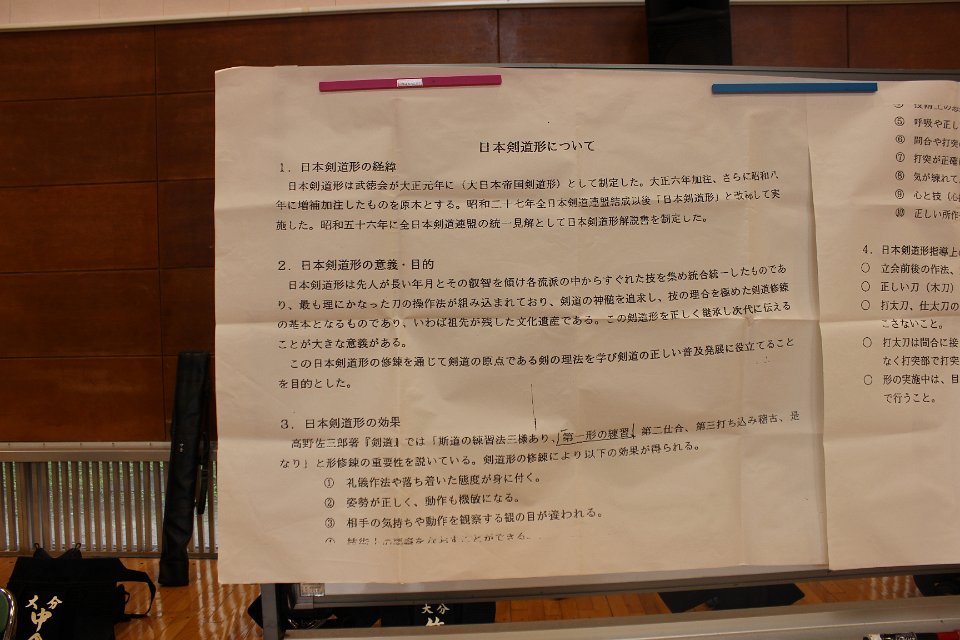 日本剣道形について
1．日本剣道形の経緯
日本剣道形は武徳会が大正元年に（大日本帝国剣道形）として制定した。大正六年加注、さらに昭和八
年に増補加注したものを原本とする。昭和二十七年全日本剣道連盟結成以後「日本剣道形」と改称して実
施した。昭和五十六年に全日本剣道連盟の統一見解として日本剣道形解説書を制定した。
2．日本剣道形の意義・目的
日本剣道形は先人が長い年月とその叡智を傾け各流派の中からすぐれた技を集め統合統一したものであ
り、最も理にかなった刀の操作法が組み込まれており、剣道の神髄を追求し、技の理合を極めた剣道修練
の基本となるものであり、いわば祖先が残した文化遺産である。この剣道形を正しく継承し次代に伝える
ことが大きな意義がある。
この日本剣道形の修錬を通じて剣道の原点である剣の理法を学び剣道の正しい普及発展に役立てること
を目的とした。
3．日本剣道形の効果
高野佐三郎著『剣道』では「斯道の練習法三様あり、第一形の練習、第二仕合、第三打ち込み稽古、是
なり」と形修錬の重要性を説いている。剣道形の修錬により以下の効果が得られる。
① 礼儀作法や落ち着いた態度が身に付く。
② 姿勢が正しく、動作も機敏になる。
③ 相手の気持ちや動作を観察する観の目が養われる。
⑤ 呼吸や正し
⑥ 間合や打突
⑦ 打突が正確
⑧ 気が練れて
⑨ 心と技（心
⑩ 正しい所作
4．日本剣道形指導上
○ 立会前後の作法、
○ 正しい刀（木刀）
○ 打太刀、仕太刀の
こさないこと。
○ 打太刀は間合に接
なく打突部で打突
○ 形の実施中は、目
で行うこと。
大分
大分